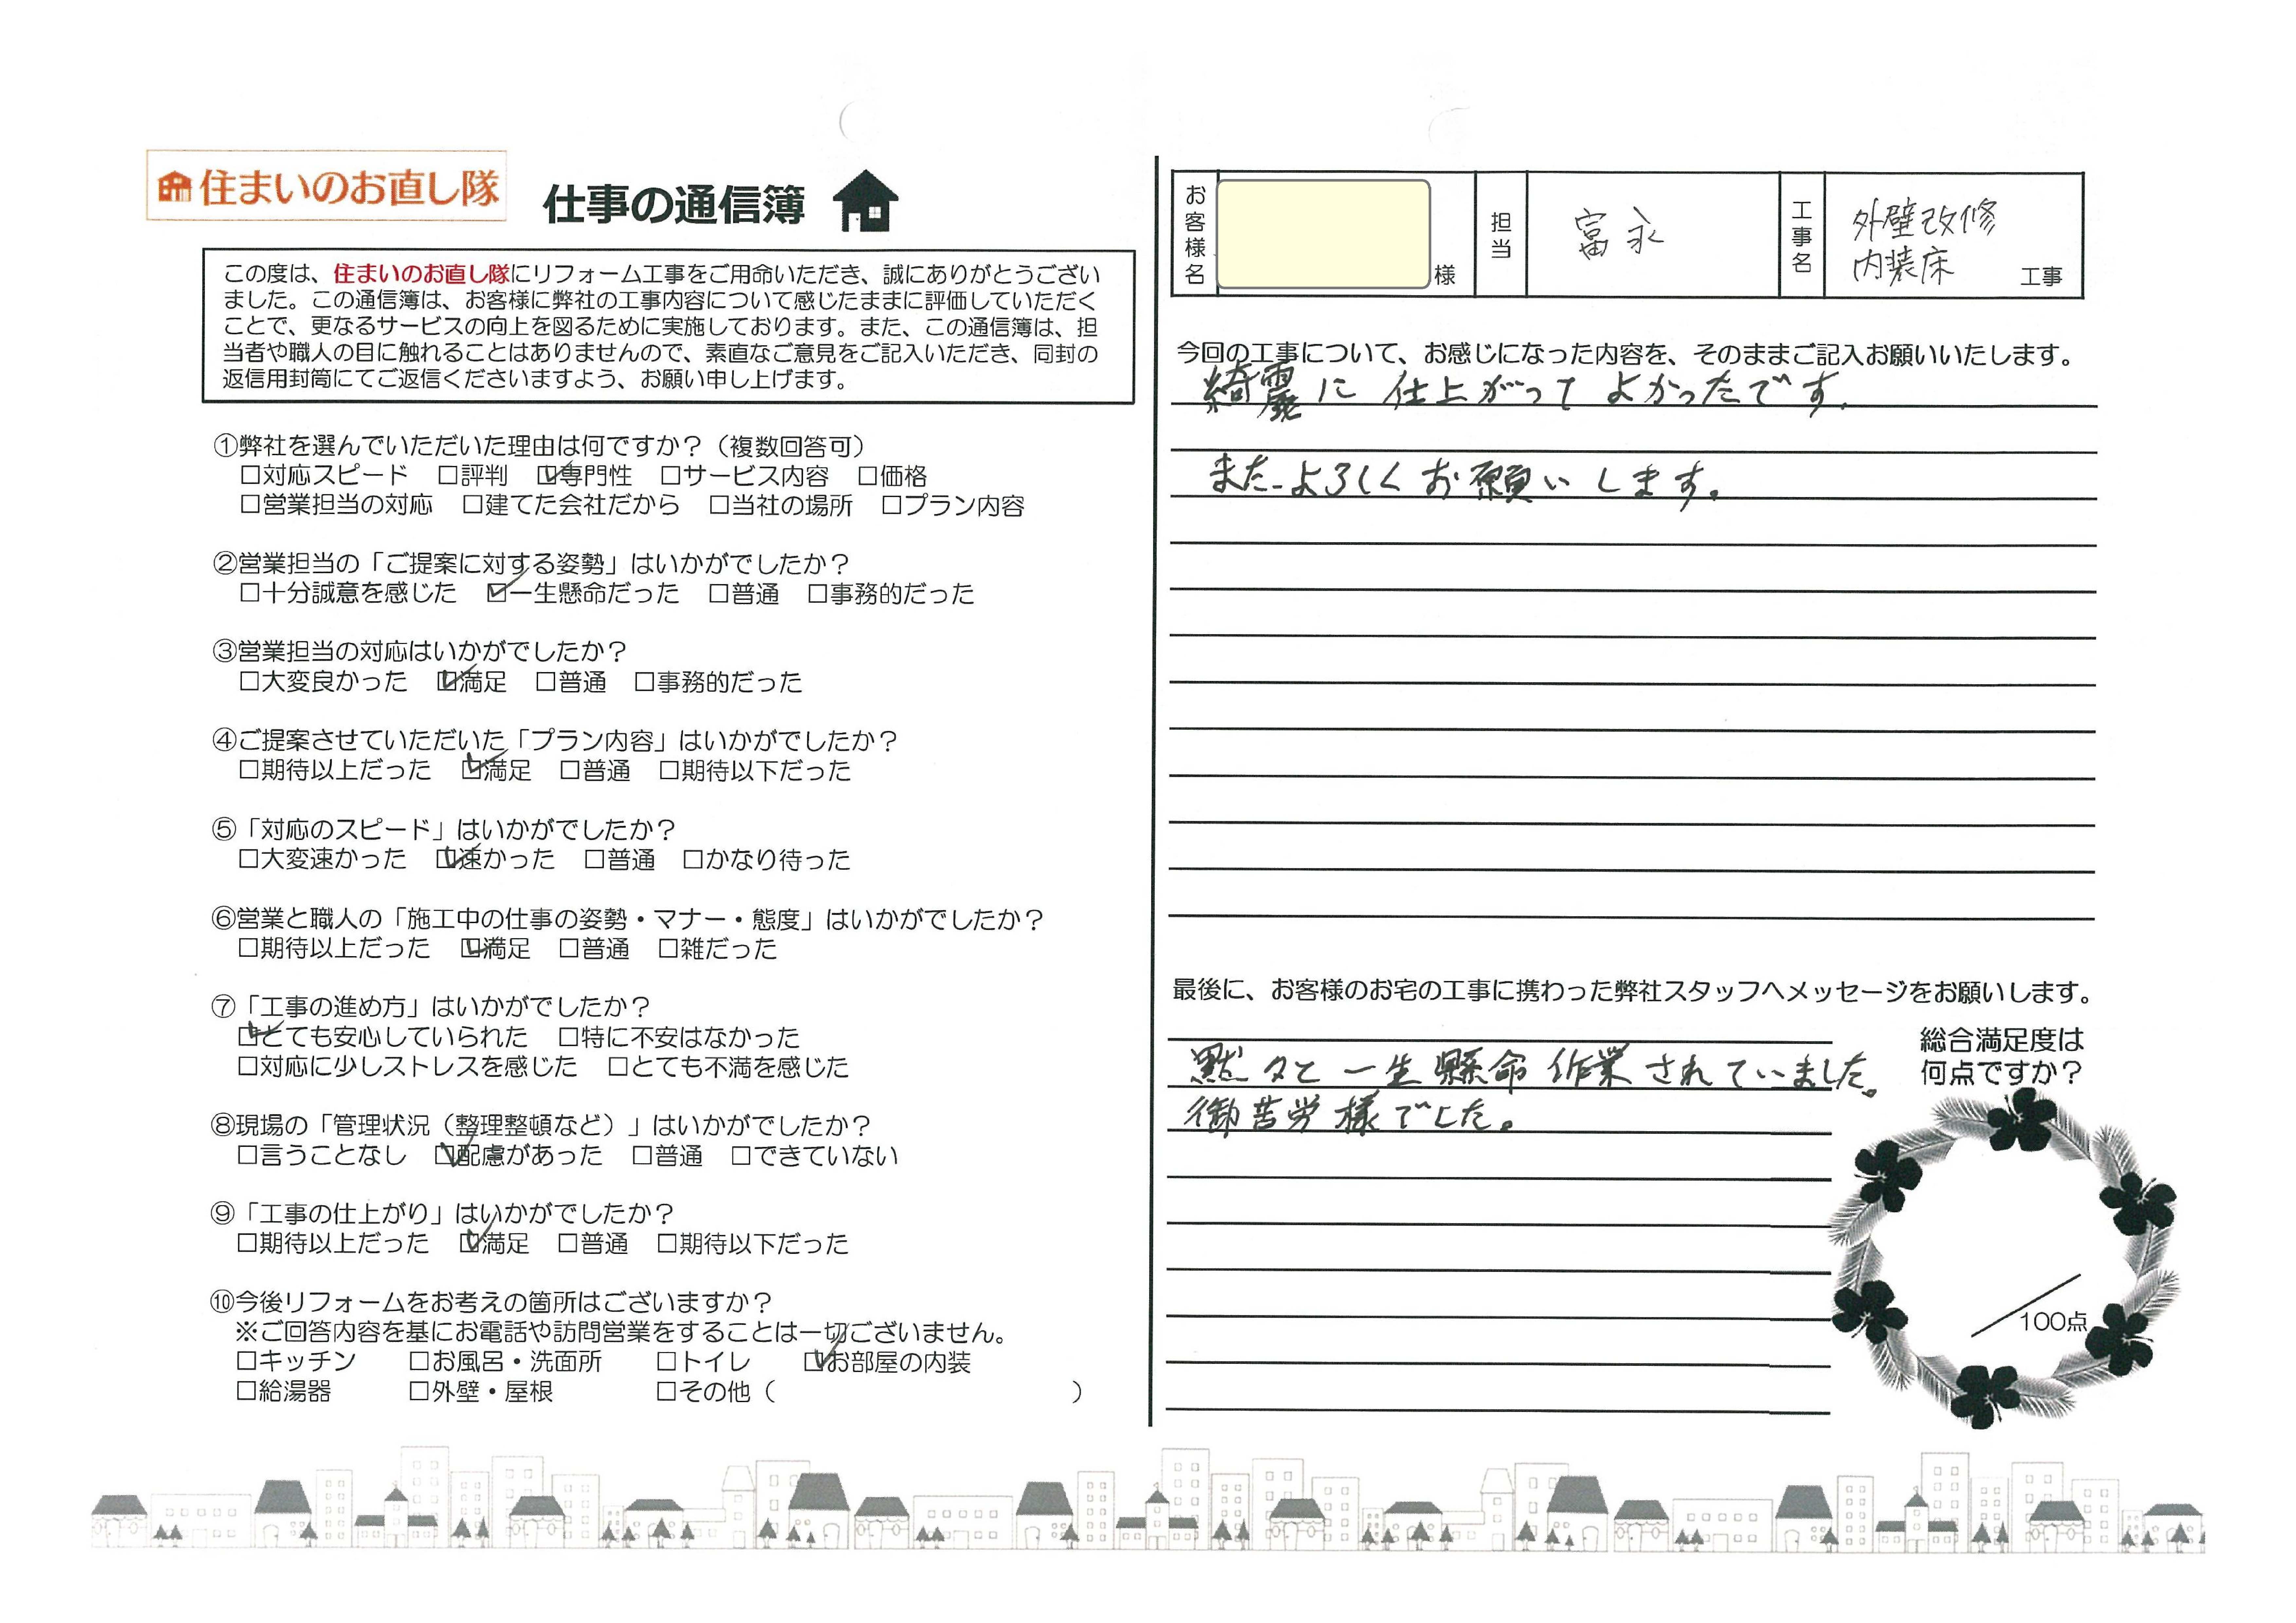 住まいのお直し隊
仕事の通信簿
この度は、住まいのお直し隊にリフォーム工事をご用命いただき、誠にありがとうござい
ました。この通信簿は、お客様に弊社の工事内容について感じたままに評価していただく
ことで、更なるサービスの向上を図るために実施しております。また、この通信簿は、担
当者や職人の目に触れることはありませんので、素直なご意見をご記入いただき、同封の
返信用封筒にてご返信くださいますよう、お願い申し上げます。
①弊社を選んでいただいた理由は何ですか？（複数回答可）
□対応スピード □評判 ☑専門性 □サービス内容 □価格
□営業担当の対応 □建てた会社だから □当社の場所 □プラン内容
②営業担当の「ご提案に対する姿勢」はいかがでしたか？
□十分誠意を感じた ☑一生懸命だった □普通 □事務的だった
③営業担当の対応はいかがでしたか？
□大変良かった ☑満足 □普通 □事務的だった
④ご提案させていただいた「プラン内容」はいかがでしたか？
□期待以上だった ☑満足 □普通 □期待以下だった
⑤「対応のスピード」はいかがでしたか？
□大変速かった ☑速かった □普通 □かなり待った
⑥営業と職人の「施工中の仕事の姿勢・マナー・態度」はいかがでしたか？
□期待以上だった ☑満足 □普通 □雑だった
⑦「工事の進め方」はいかがでしたか？
☑とても安心していられた □特に不安はなかった
□対応に少しストレスを感じた □とても不満を感じた
⑧現場の「管理状況（整理整頓など）」はいかがでしたか？
□言うことなし ☑配慮があった □普通 □できていない
⑨「工事の仕上がり」はいかがでしたか？
□期待以上だった ☑満足 □普通 □期待以下だった
⑩今後リフォームをお考えの箇所はございますか？
※ご回答内容を基にお電話や訪問営業をすることは一切ございません。
□キッチン □お風呂・洗面所 □トイレ ☑お部屋の内装
□給湯器 □外壁・屋根 □その他（ ）
お客様名 様 担当 富永 工事名 外壁改修
内装床 工事
今回の工事について、お感じになった内容を、そのままご記入お願いいたします。
綺麗に仕上がってよかったです。
またよろしくお願いします。
最後に、お客様のお宅の工事に携わった弊社スタッフへメッセージをお願いします。
黙々と一生懸命作業されていました。
御苦労様でした。
総合満足度は
何点ですか？
／100点